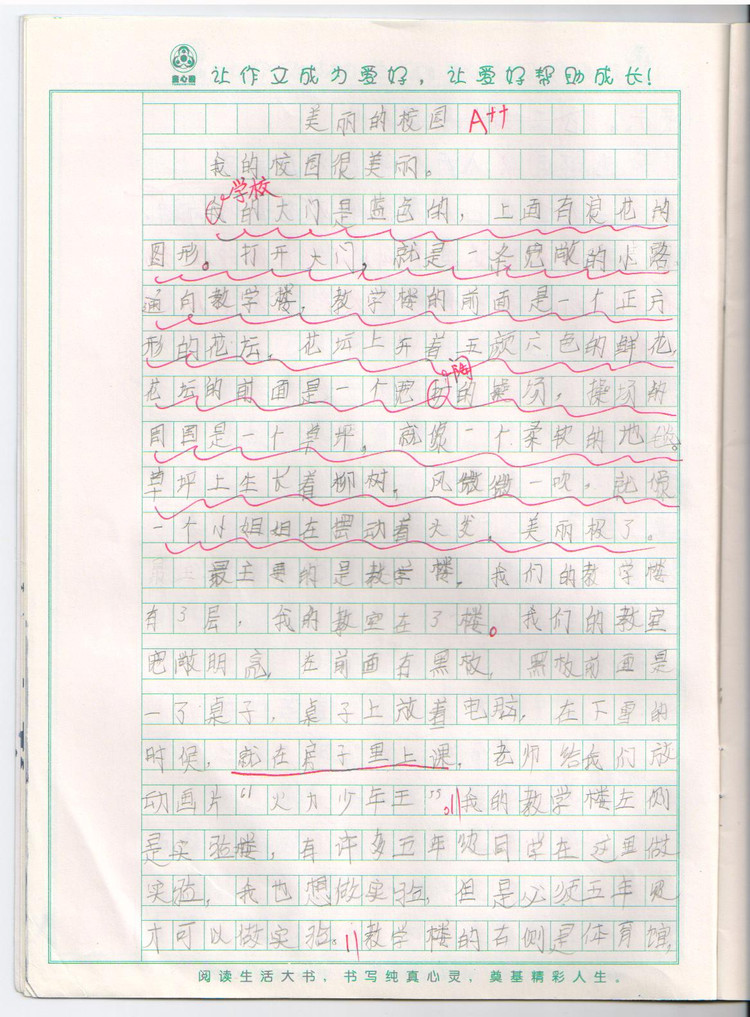 让作立成为爱好，让爱好帮助成长！
美丽的校园 A++
我的校园很美丽。
学校
我的大门是蓝色的，上面有浪花的
图形。打开大门，就是一条宽敞的小路
通向教学楼，教学楼的前面是一个正方
形的花坛，花坛上开着五颜六色的鲜花，
阔
花坛的前面是一个宽的操场，操场的
周围是一个草坪，就像一个柔软的地毯。
草坪上生长着柳树，风微微一吹，就像
一个小姐姐在摆动着头发，美丽极了。
最主要的是教学楼，我们的教学楼
有3层，我的教室在3楼。我们的教室
宽敞明亮，在前面有黑板，黑板前面是
一了桌子，桌子上放着电脑，在下雪的
时候，就在房子里上课，老师给我们放
动画片“火力少年王”我的教学楼左侧
是实验楼，有许多五年级同学在这里做
实验，我也想做实验，但是必须五年级
才可以做实验。教学楼的右侧是体育馆，
阅读生活大书，书写纯真心灵，奠基精彩人生。